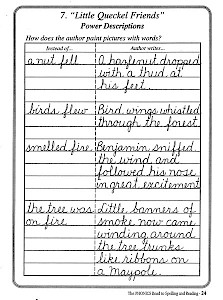 7. "Little Queckel Friends"
Power Descriptions
How does the author paint pictures with words?
Instead of...
Author writes...
a nut fell
A hazelnut dropped
with a thud at
his feet.
birds flew
Bird wings whistled
through the forest
smelled fire
Benjamin sniffed
the wind and
followed his nose
in great excitement
the tree was
on fire
Little banners of
smoke now came
winding around
the tree trunks
like ribbons on
a Maypole.
The PHONICS Road to Spelling and Reading - 24